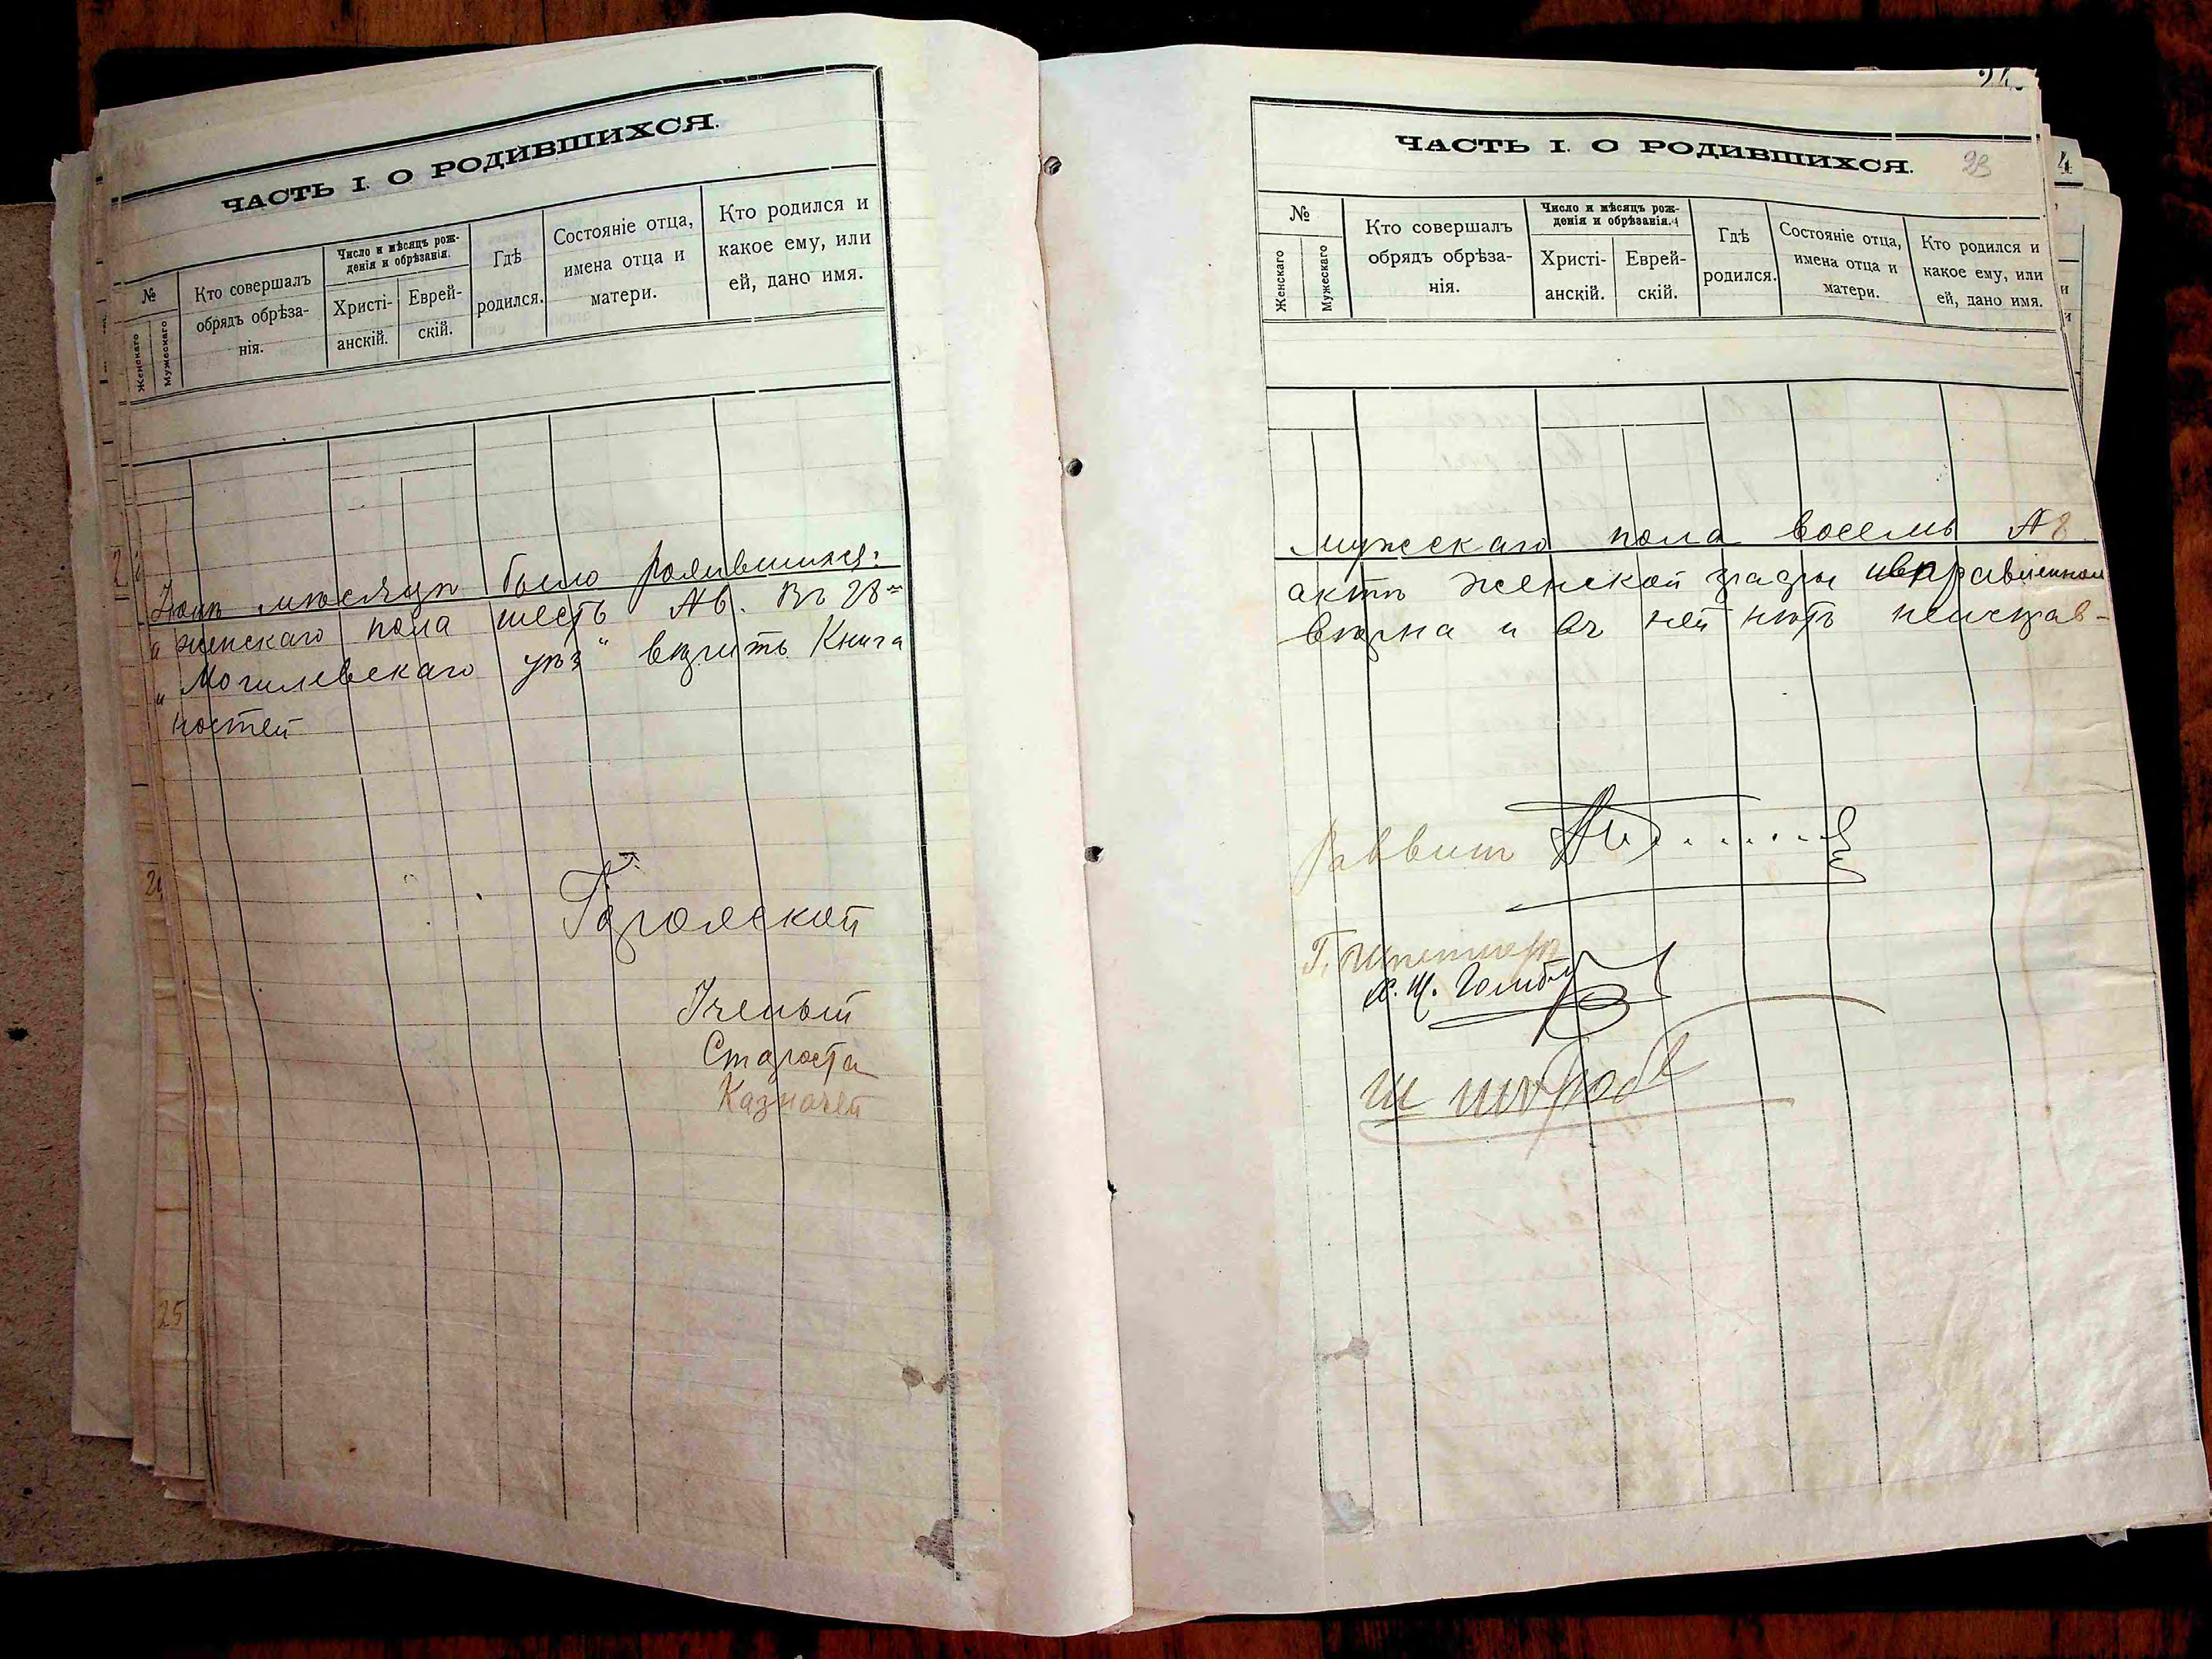 ЧАСТЬ I. О РОДИВШИХСЯ.
№
Женскаго
Мужескаго
Кто совершалъ
обрядъ обрѣза-
нія.
Число и мѣсяцъ рож-
денія и обрѣзанія.
Христі-
анскій.
Еврей-
скій.
Гдѣ
родился.
Состояніе отца,
имена отца и
матери.
Кто родился и
какое ему, или
ей, дано имя.
мѣсяцѣ было родившихся:
а женскаго пола шесть №6. Въ 28
Могилевскаго уѣз" Книга
ностей
Ученый
Староста
Казначей
25
ЧАСТЬ I. О РОДИВШИХСЯ.
23
№
Женскаго
Мужескаго
Кто совершалъ
обрядъ обрѣза-
нія.
Число и мѣсяцъ рож-
денія и обрѣзанія.
Христі-
анскій.
Еврей-
скій.
Гдѣ
родился.
Состояніе отца,
имена отца и
матери.
Кто родился и
какое ему, или
ей, дано имя.
мужскаго пола восемь №8
актѣ женской графы
вѣрна и въ ней нѣтъ неисправ-
Раввинъ
4